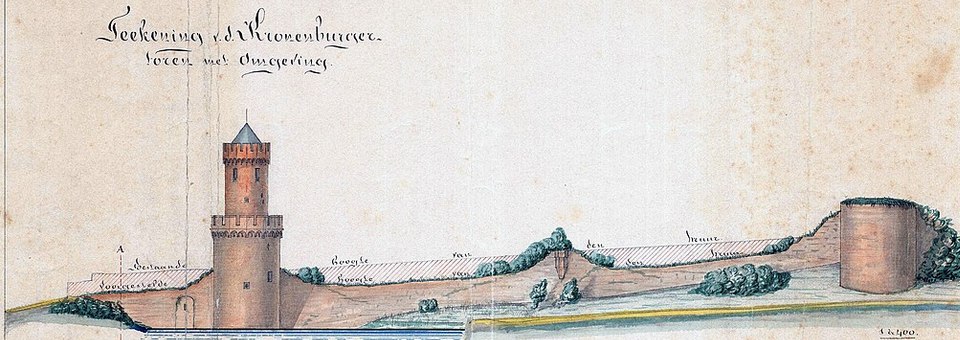 Teekening v. d. Kronenburger-
toren met Omgeving.
A
Bestaande Hoogte van den muur
Voorgestelde Hoogte van den muur
1 à 400.